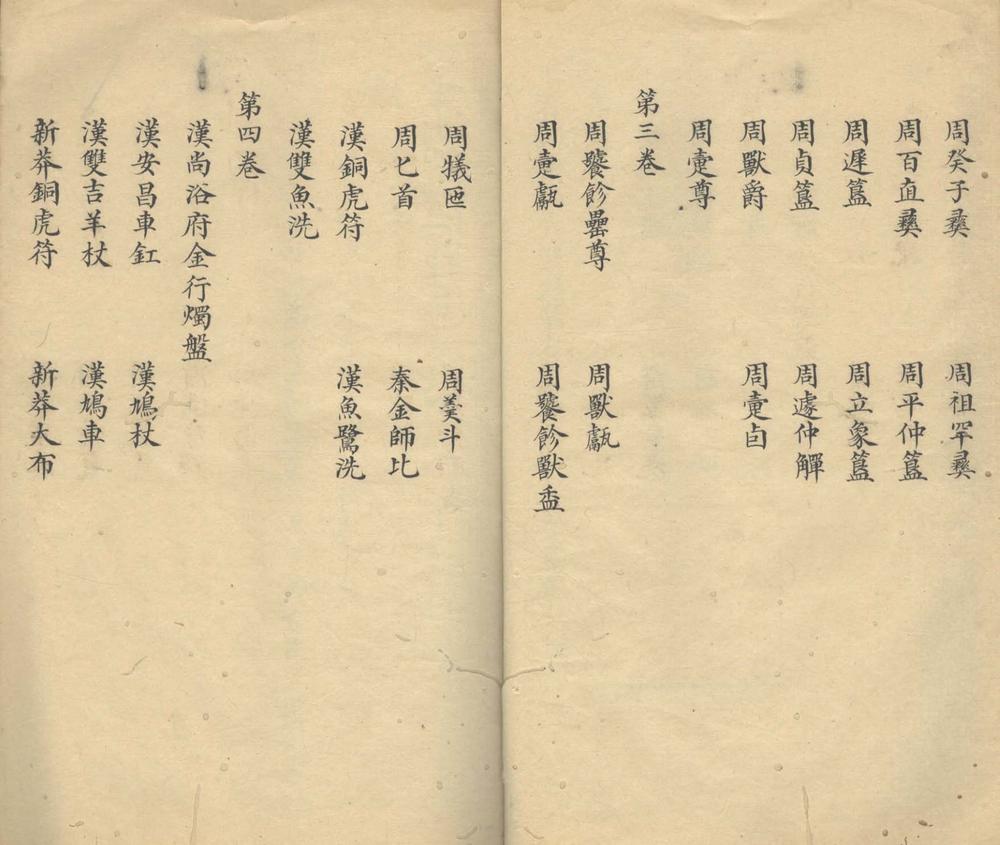 周癸子彝　周祖罕彝
周百直彝　周平仲簋
周遲簋　周立象簋
周貞簋　周遽仲觶
周獸爵　周疐卣
周疐尊
第三卷
周饕飻罍尊　周獸甗
周疐甗　周饕飻獸盉
周犧匜　周羹斗
周匕首　秦金師比
漢銅虎符　漢魚鷺洗
漢雙魚洗
第四卷
漢尚浴府金行燭盤
漢安昌車釭　漢鳩杖
漢雙吉羊杖　漢鳩車
新莽銅虎符　新莽大布